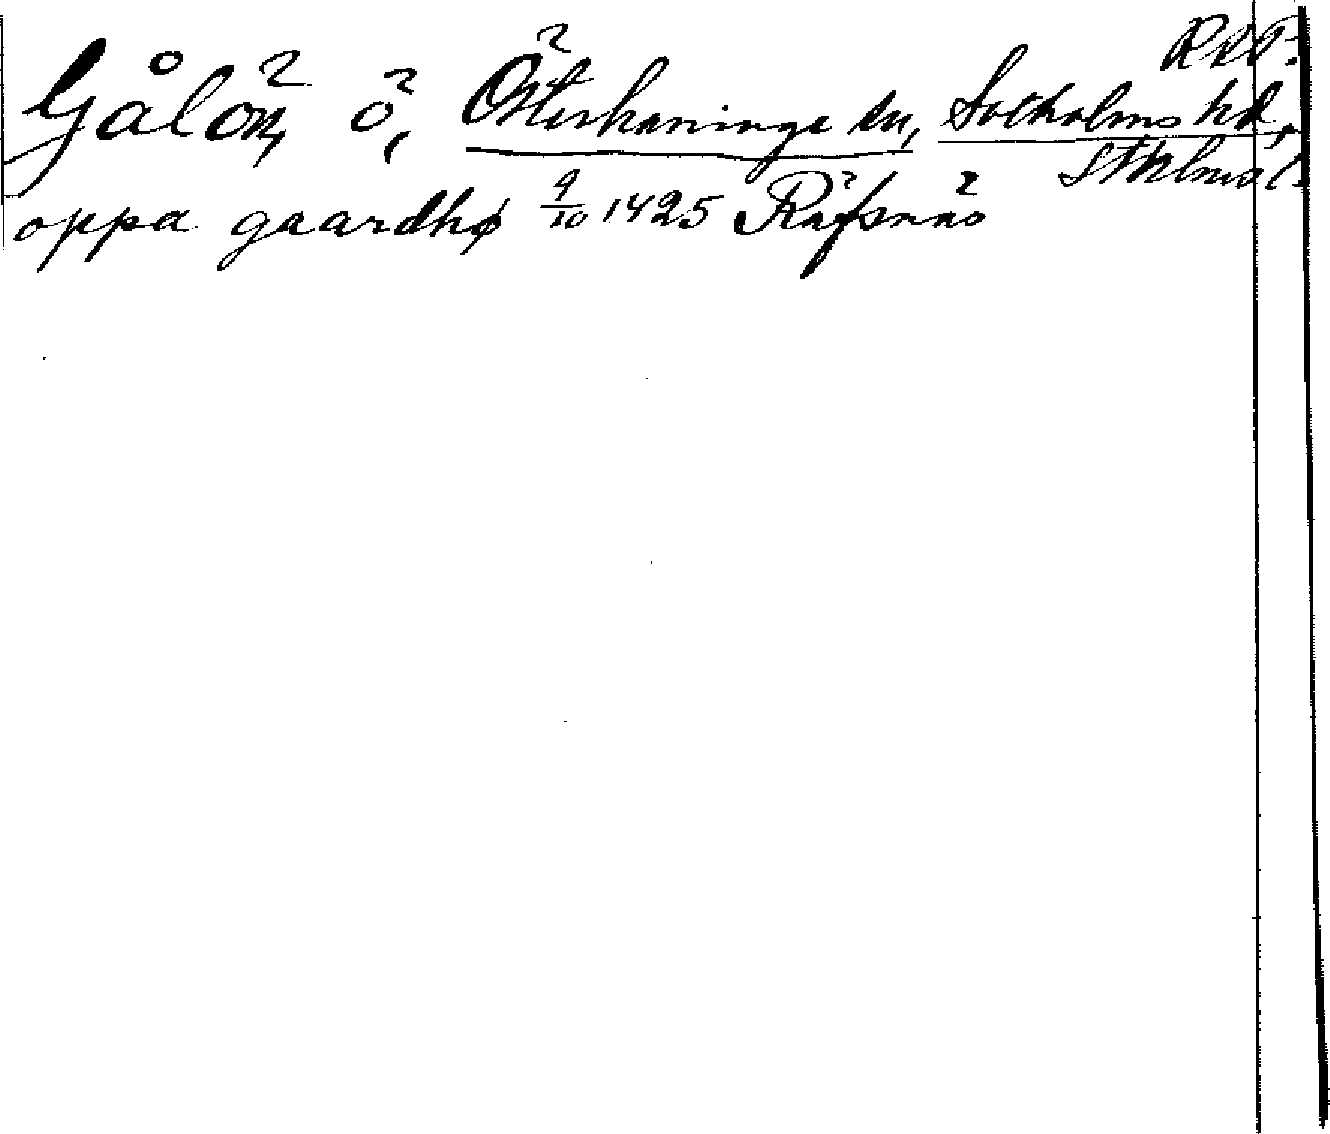 RAP.
Gålön, ö, Österhaninge sn, Sotholms hd,
Sthlms l.
oppa gaardhø 9/10 1425 Räfsnäs